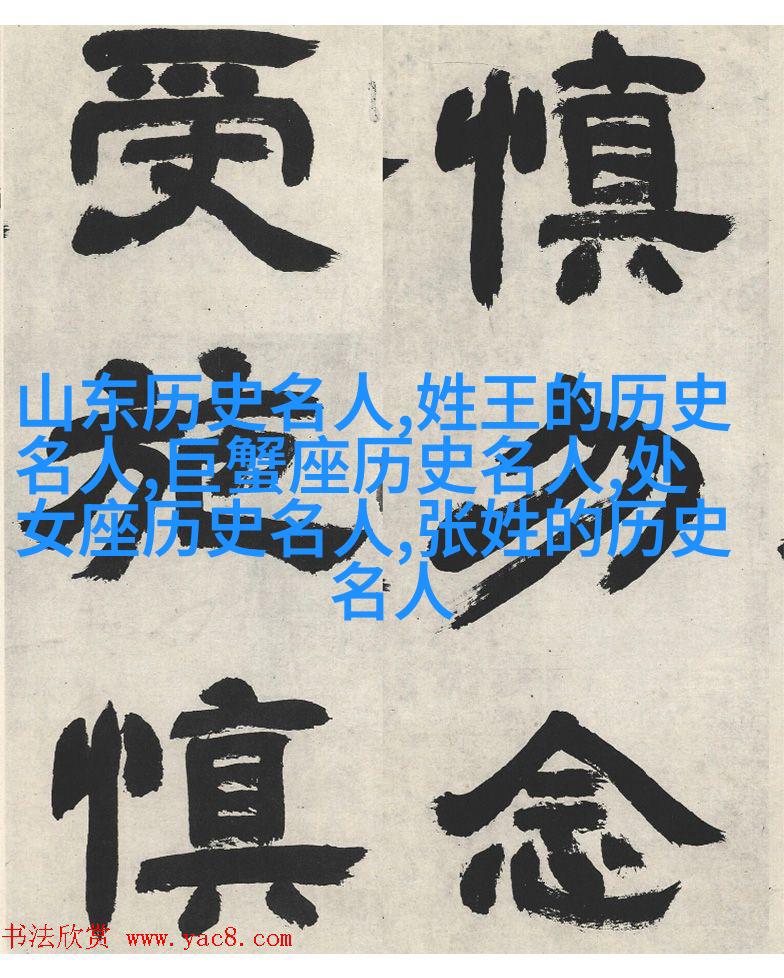 慎勿念
受施慎
山东历史名人,姓王的历史
名人,巨蟹座历史名人,处
女座历史名人,张姓的历史
名人
书法欣赏 www.yac8.com